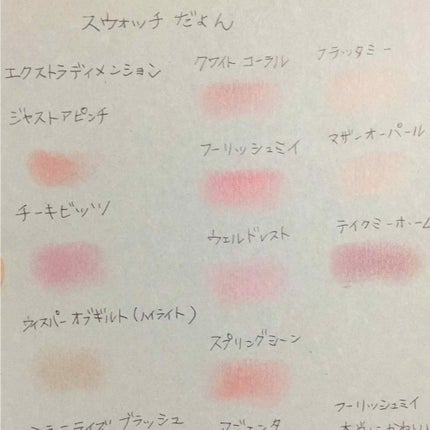 スウォッチ だょん
エクストラディメンション
ジャストアピンチ
チーキビッツ
ウィスパー オブギルト(ハイライト)
ブラッシュ
クワイト コーラル
フーリッシュミイ
ウェルドレスト
スプリングシーン
フラッタミー
マザーオーパール
テイクミーホーム
フーリッシュミイ